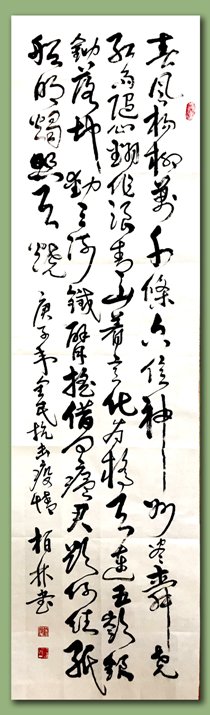 春風楊柳萬千條六億神州盡舜堯
紅雨隨心翻作浪青山着意化為橋天連五嶺銀
鋤落地動三河鐵臂搖借問瘟君欲何往紙
船明燭照天燒 庚子年全民抗击疫情 柏林书